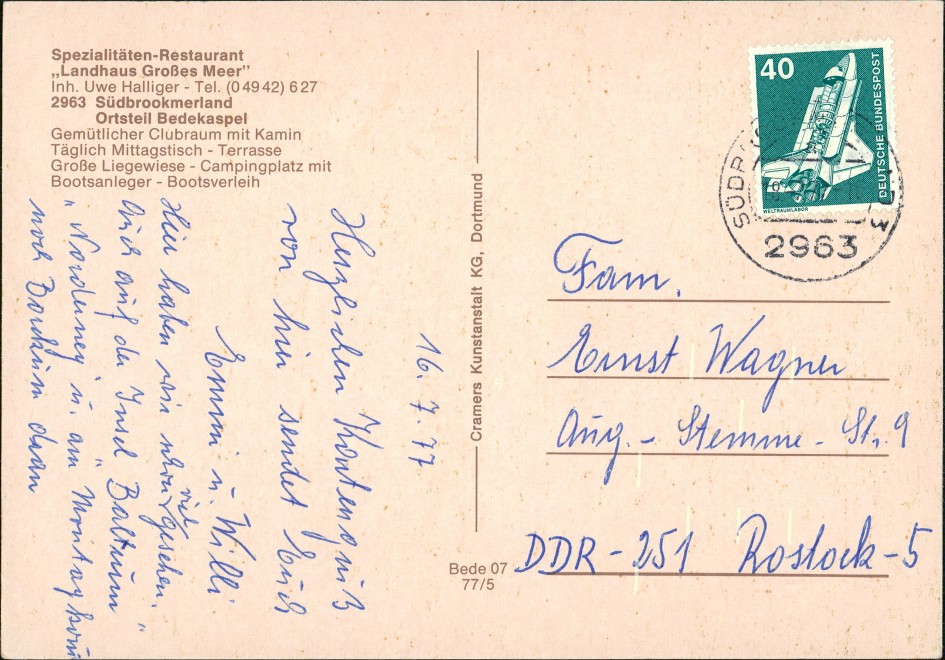 Spezialitäten-Restaurant
„Landhaus Großes Meer”
Inh. Uwe Halliger - Tel. (04942) 627
2963 Südbrookmerland
Ortsteil Bedekaspel
Gemütlicher Clubraum mit Kamin
Täglich Mittagstisch - Terrasse
Große Liegewiese - Campingplatz mit
Bootsanleger - Bootsverleih
16.7.77
Herzlichen Kartengruß
von hier sendet Euch
Emmi u. Willi
Hier haben wir schon viel gesehen.
Auch auf der Insel Baltrum"
"Norderney u. am Montag
noch Borkum dran
Cramers Kunstanstalt KG, Dortmund
Bede 07
77/5
40
DEUTSCHE BUNDESPOST
WELTRAUMLABOR
2963
Fam.
Ernst Wagner
Aug.-Stemme-Str. 9
DDR-251 Rostock-5